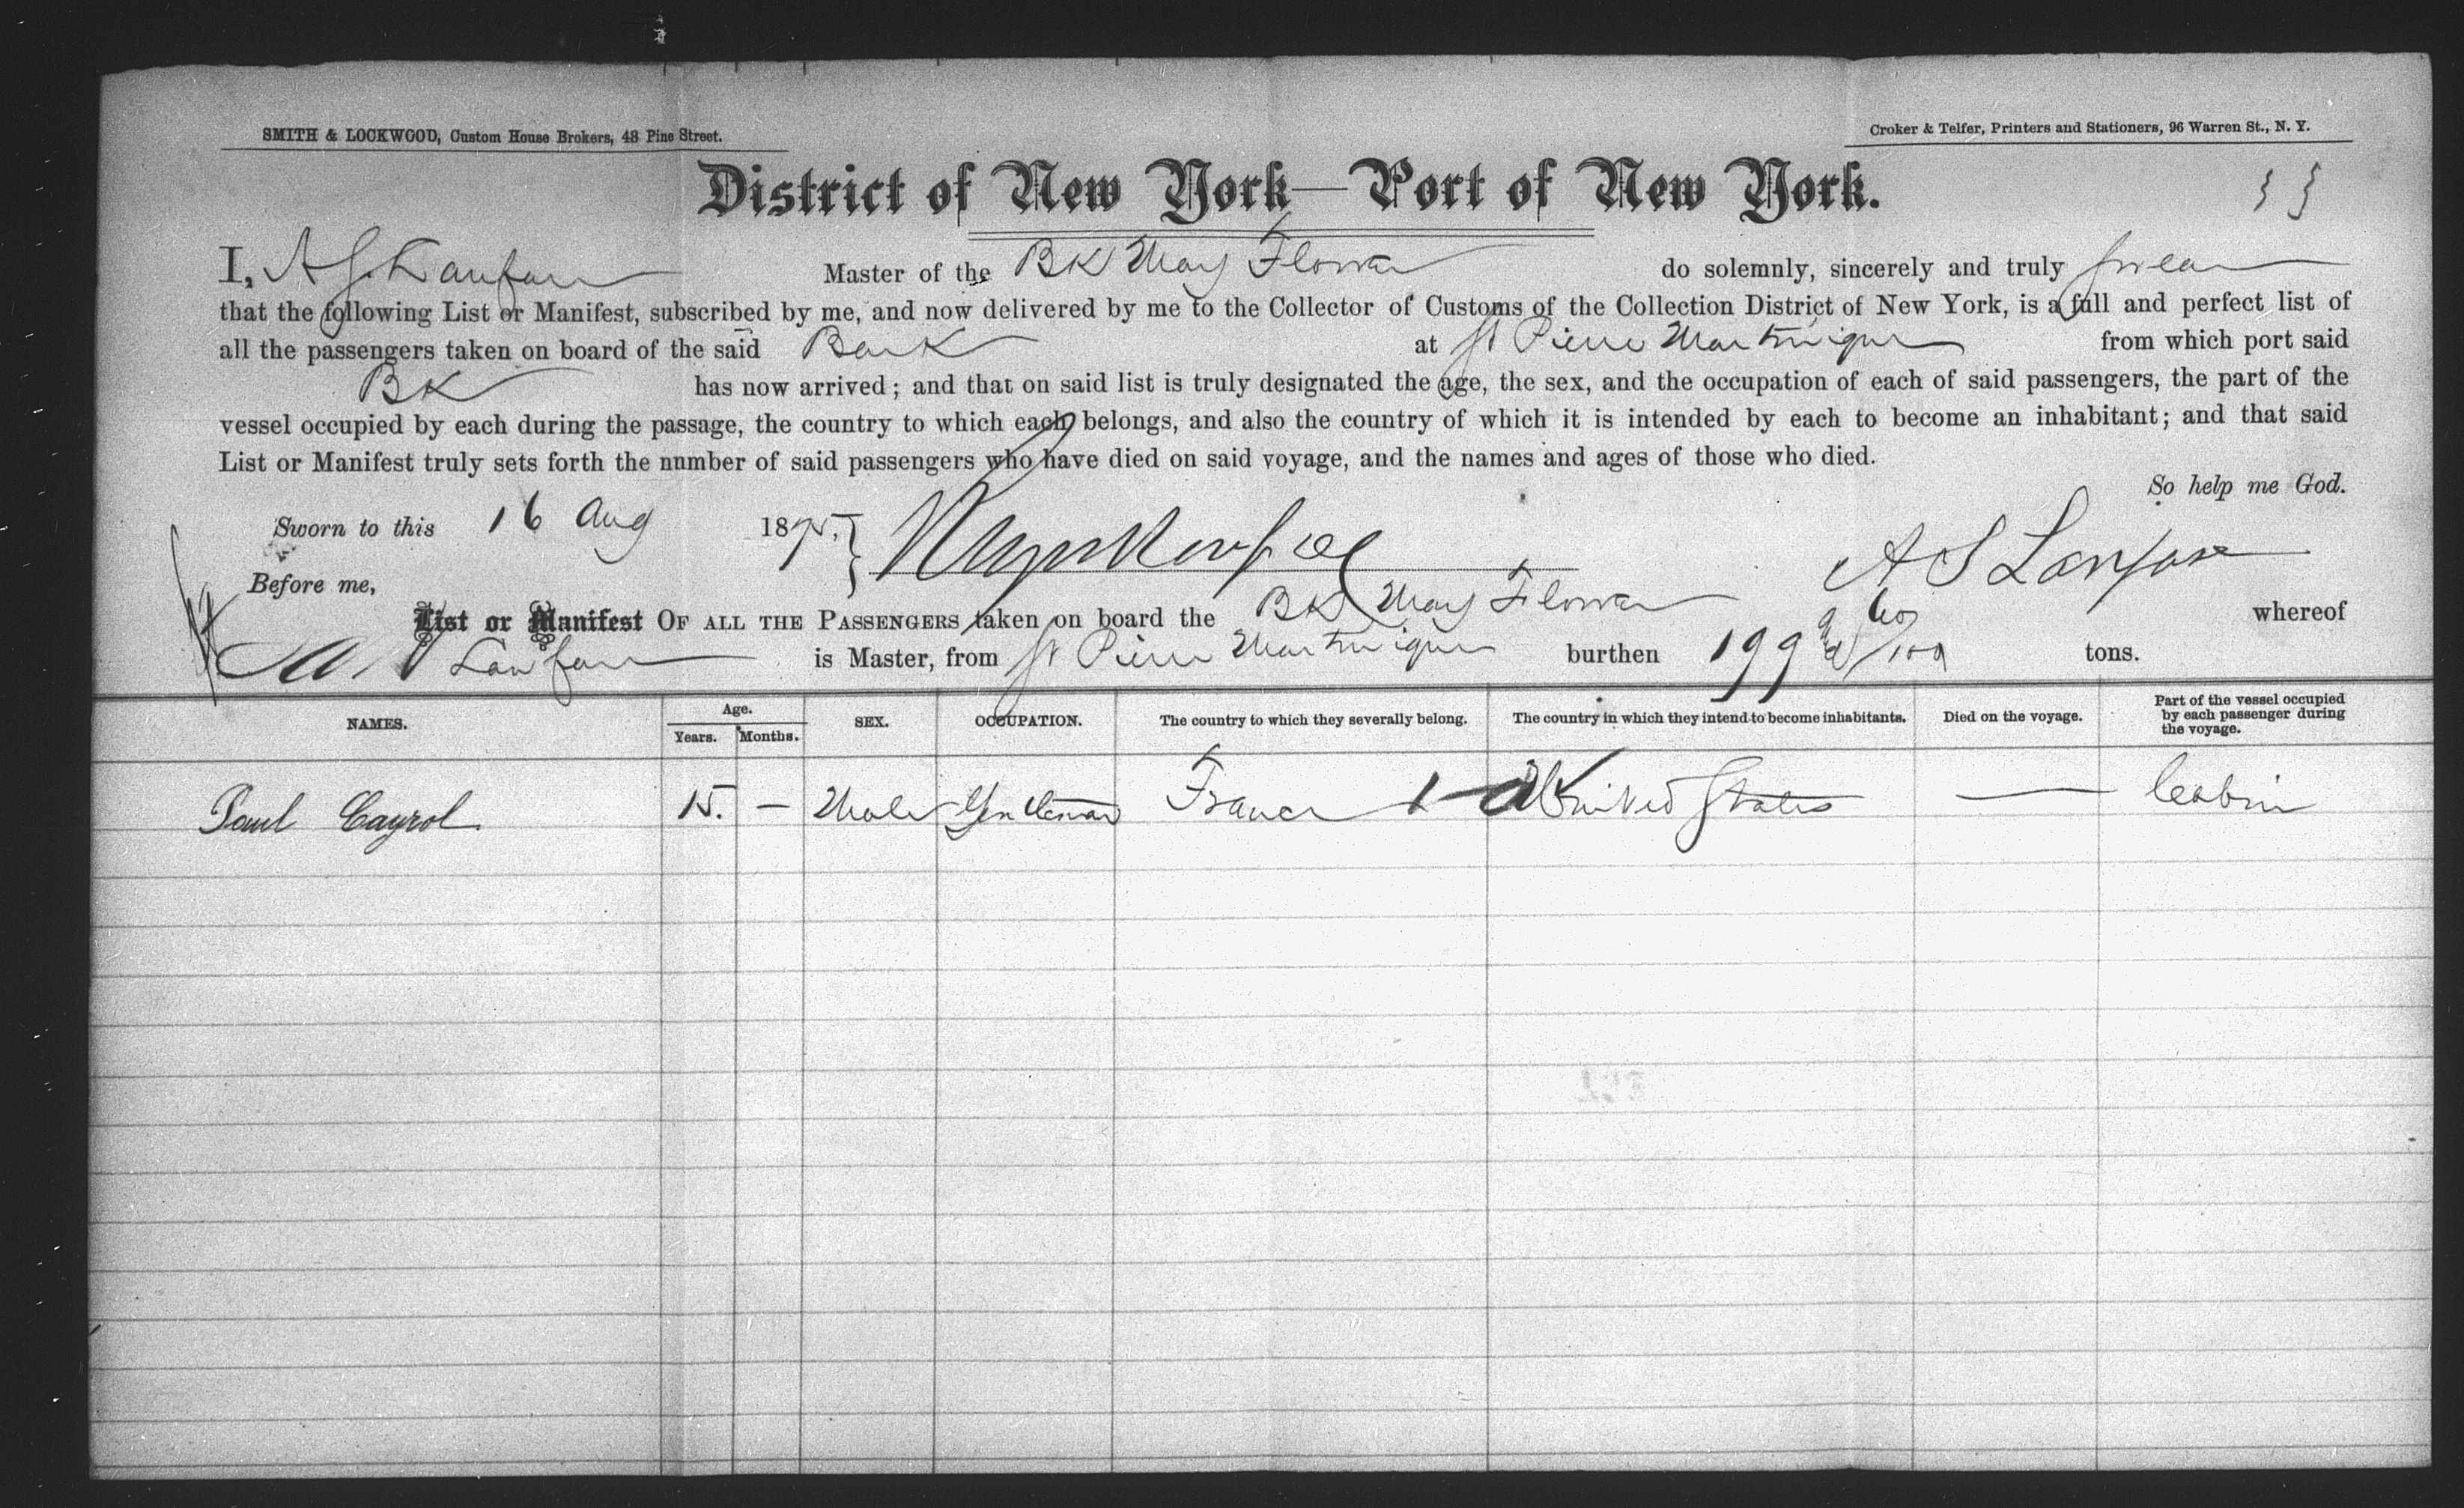 SMITH & LOCKWOOD, Custom House Brokers, 48 Pine Street.
Croker & Telfer, Printers and Stationers, 96 Warren St., N. Y.
District of New York—Port of New York.
I, A S Lanfare Master of the BK May Flower do solemnly, sincerely and truly swear
that the following List or Manifest, subscribed by me, and now delivered by me to the Collector of Customs of the Collection District of New York, is a full and perfect list of
all the passengers taken on board of the said Bark at St Pierre Martinique from which port said
BK has now arrived; and that on said list is truly designated the age, the sex, and the occupation of each of said passengers, the part of the
vessel occupied by each during the passage, the country to which each belongs, and also the country of which it is intended by each to become an inhabitant; and that said
List or Manifest truly sets forth the number of said passengers who have died on said voyage, and the names and ages of those who died.
So help me God.
Sworn to this 16 Aug 1875. A S Lanfare
Before me,
List or Manifest OF ALL THE PASSENGERS taken on board the BK May Flower whereof
A S Lanfare is Master, from St Pierre Martinique burthen 199 tons.
NAMES. Age. Years. Months. SEX. OCCUPATION. The country to which they severally belong. The country in which they intend to become inhabitants. Died on the voyage. Part of the vessel occupied by each passenger during the voyage.
Paul Cayrol 15. — Male Gentleman France United States — Cabin